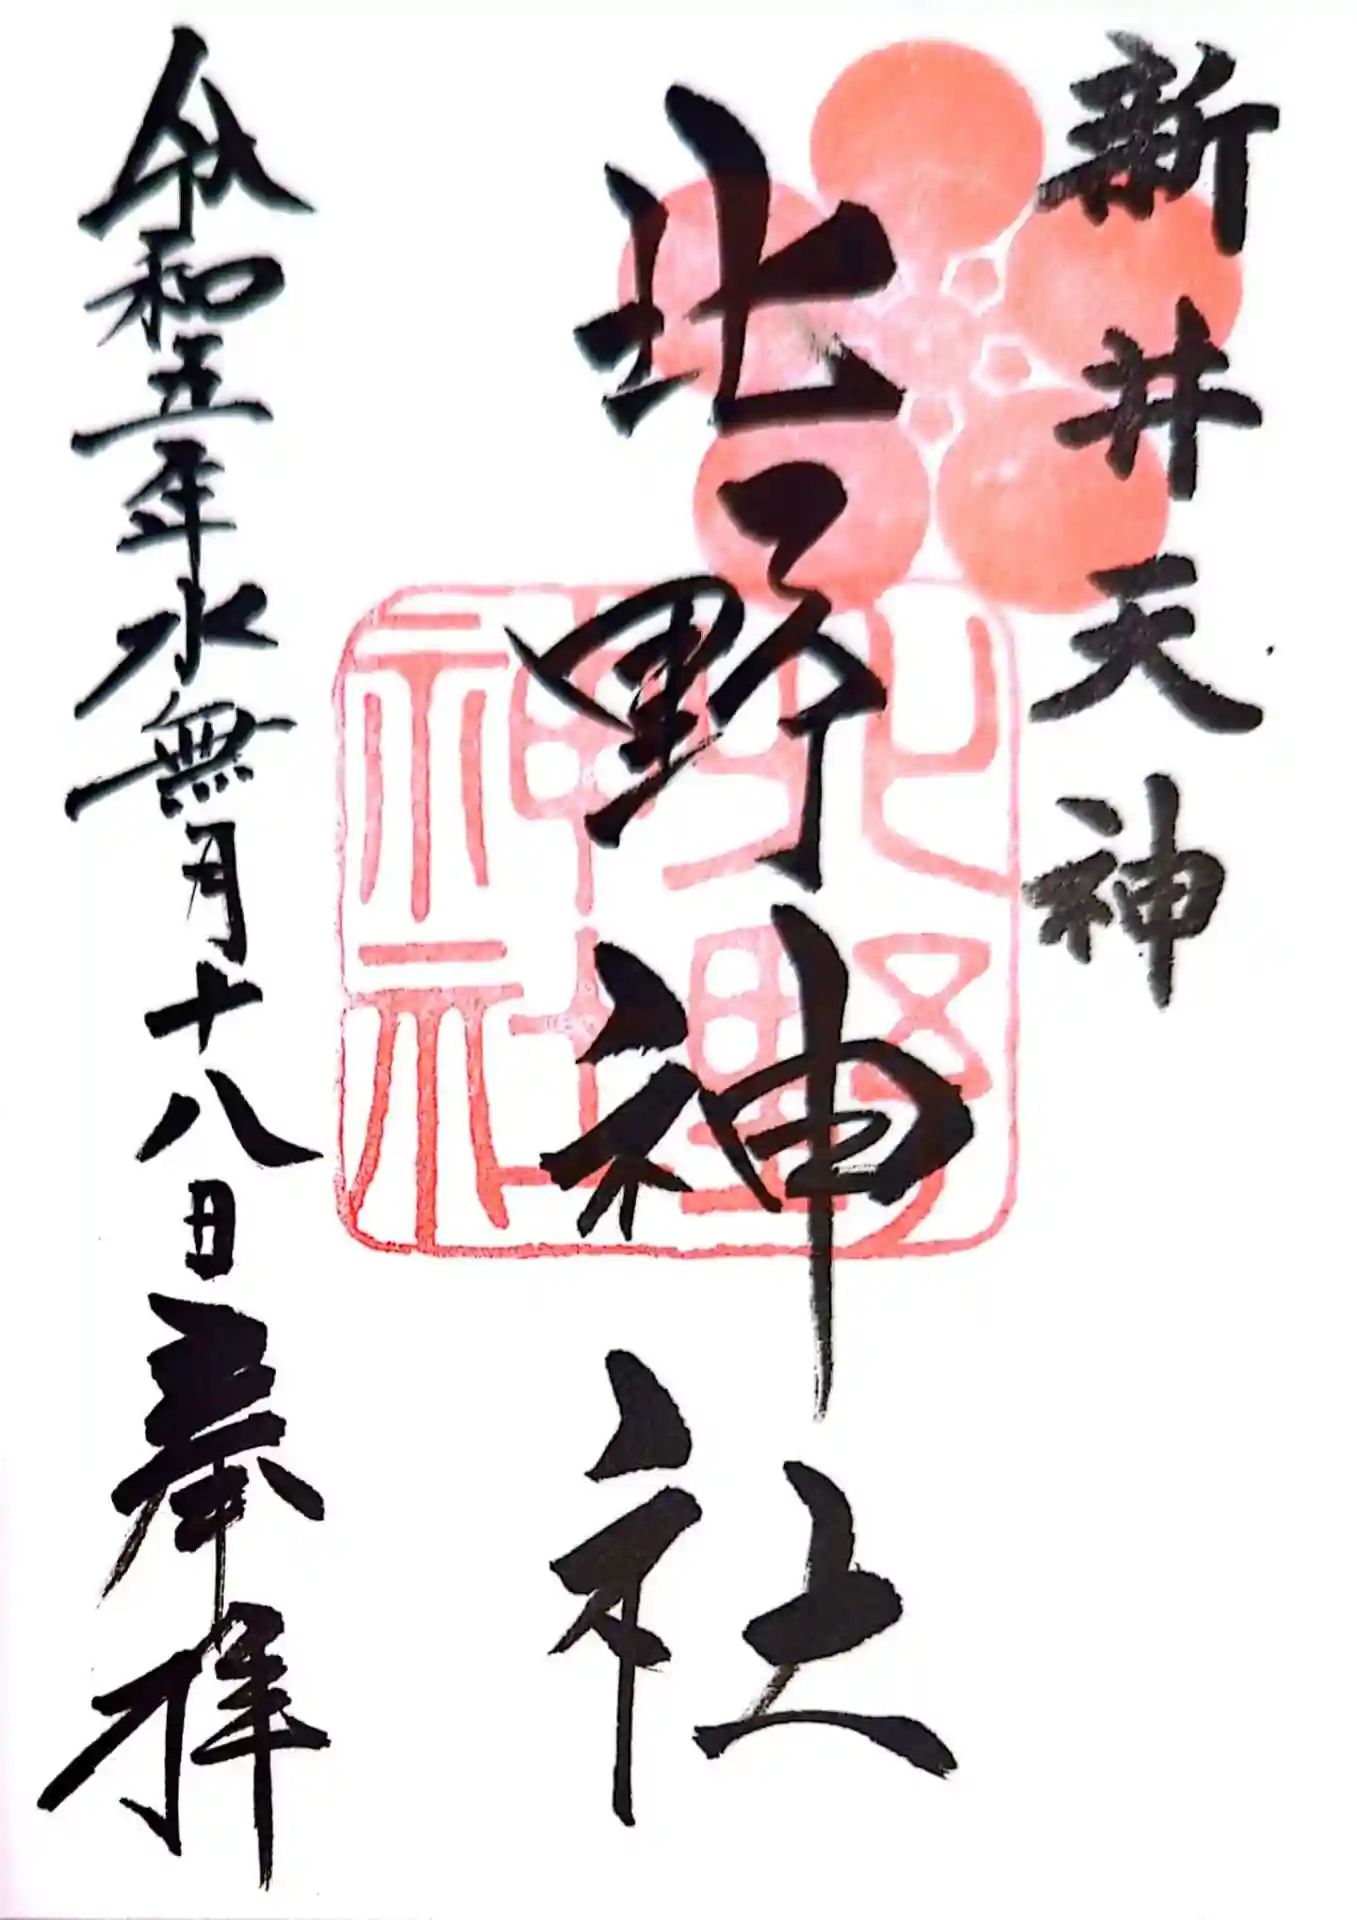 新井天神
北野神社
北野
神社
令和五年水無月十八日奉拝